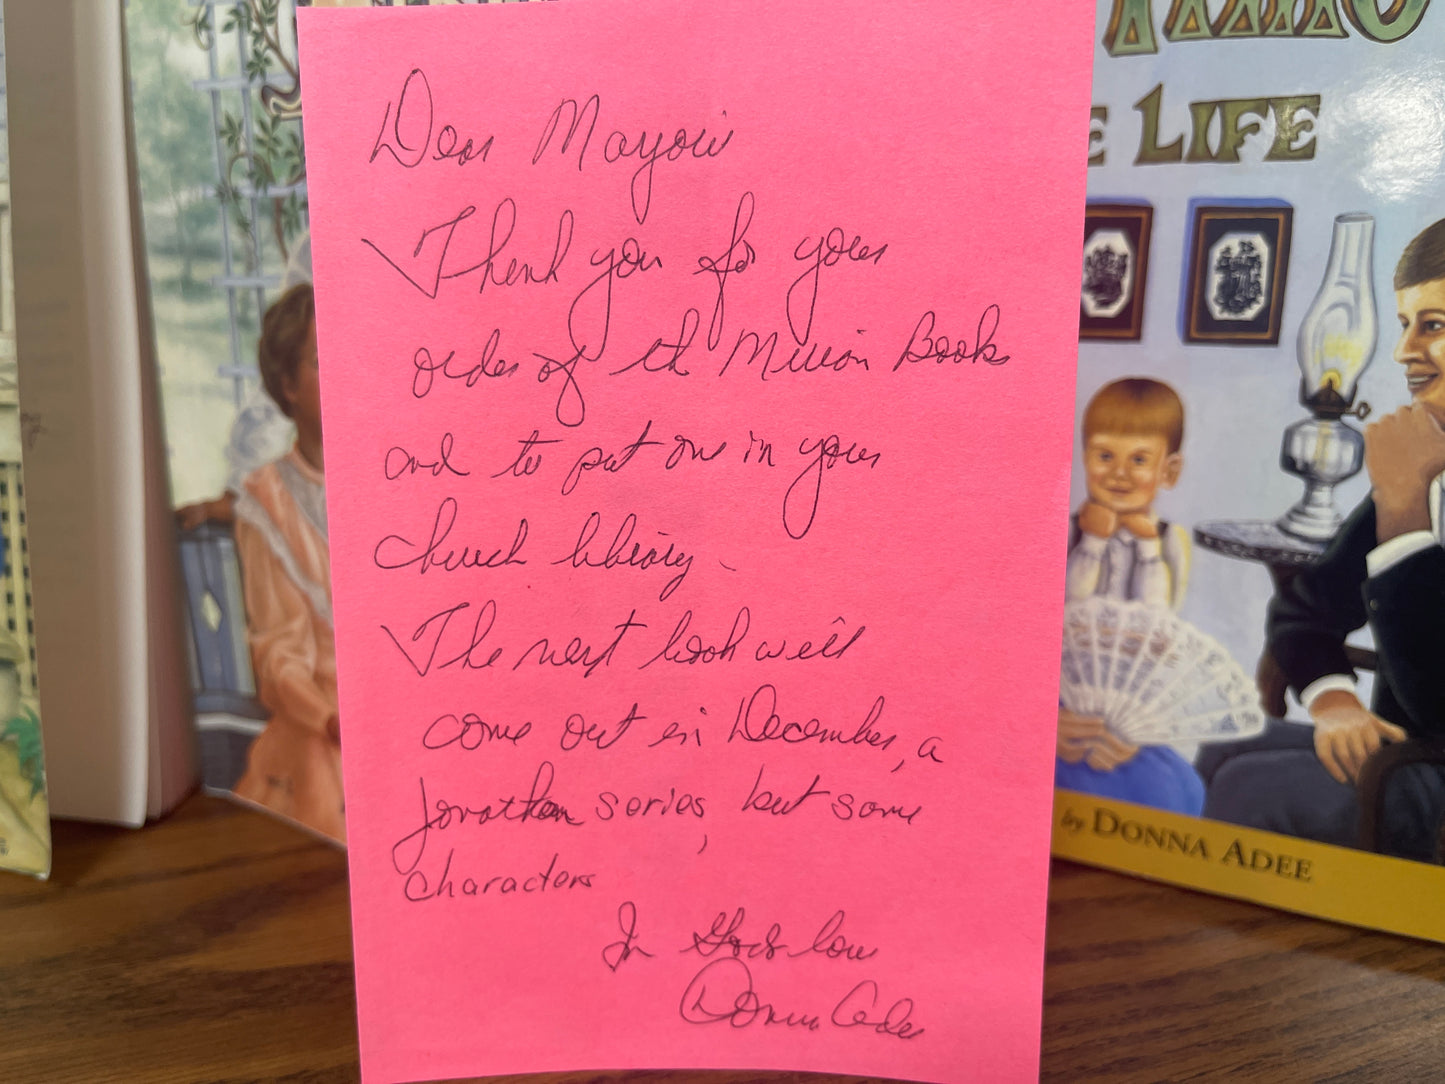 Dear Marjorie
Thank you for your
order of the Mission Books
and to put one in your
church library.
The next book will
come out in December, a
Jonathan series, but some
characters
In Gods love
Donna Adee
E LIFE
by DONNA ADEE